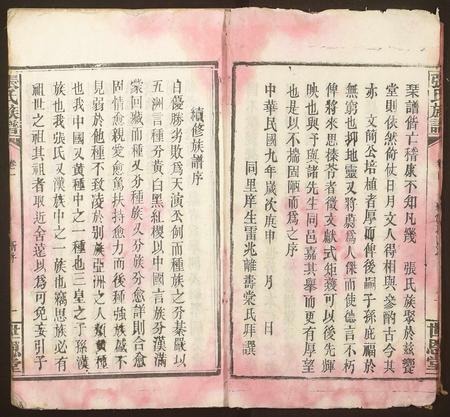 張氏族譜
梨譜皆亡稽康不知凡幾 張氏族聚於茲饗
堂則依然倚仗日月文人得相與參酌古今其
亦 文簡公培植者厚而俾後嗣子孫庇福於
無窮也抑地靈又將蔚為人傑而使德言不朽
俾將來思榛苓者徵文獻式矩矱可以後先輝
映也與予與諸先生同邑嘉其舉而更有厚望
也是以不揣固陋而為之序
中華民國九年歲次庚申 月 日
同里庠生雷兆離壽棠氏拜譔
世恩堂
張氏族譜
續修族譜序
自優勝劣敗為天演公創而種族之分綦嚴以
五洲言種分黃白黑紅棕以中國言族分漢滿
蒙回藏而種又分種族又分族分愈詳則合愈
固情愈親愛愈篤扶持愈力而後種強族盛不
見弱於他種不致凌於別族亞洲之人類黃種
也我中國又黃種中之一種也三皇之子孫漢
族也我張氏又漢族中之一族也竊思族必有
祖世之祖其祖者取近舍遠以為可免妄引于
世恩堂